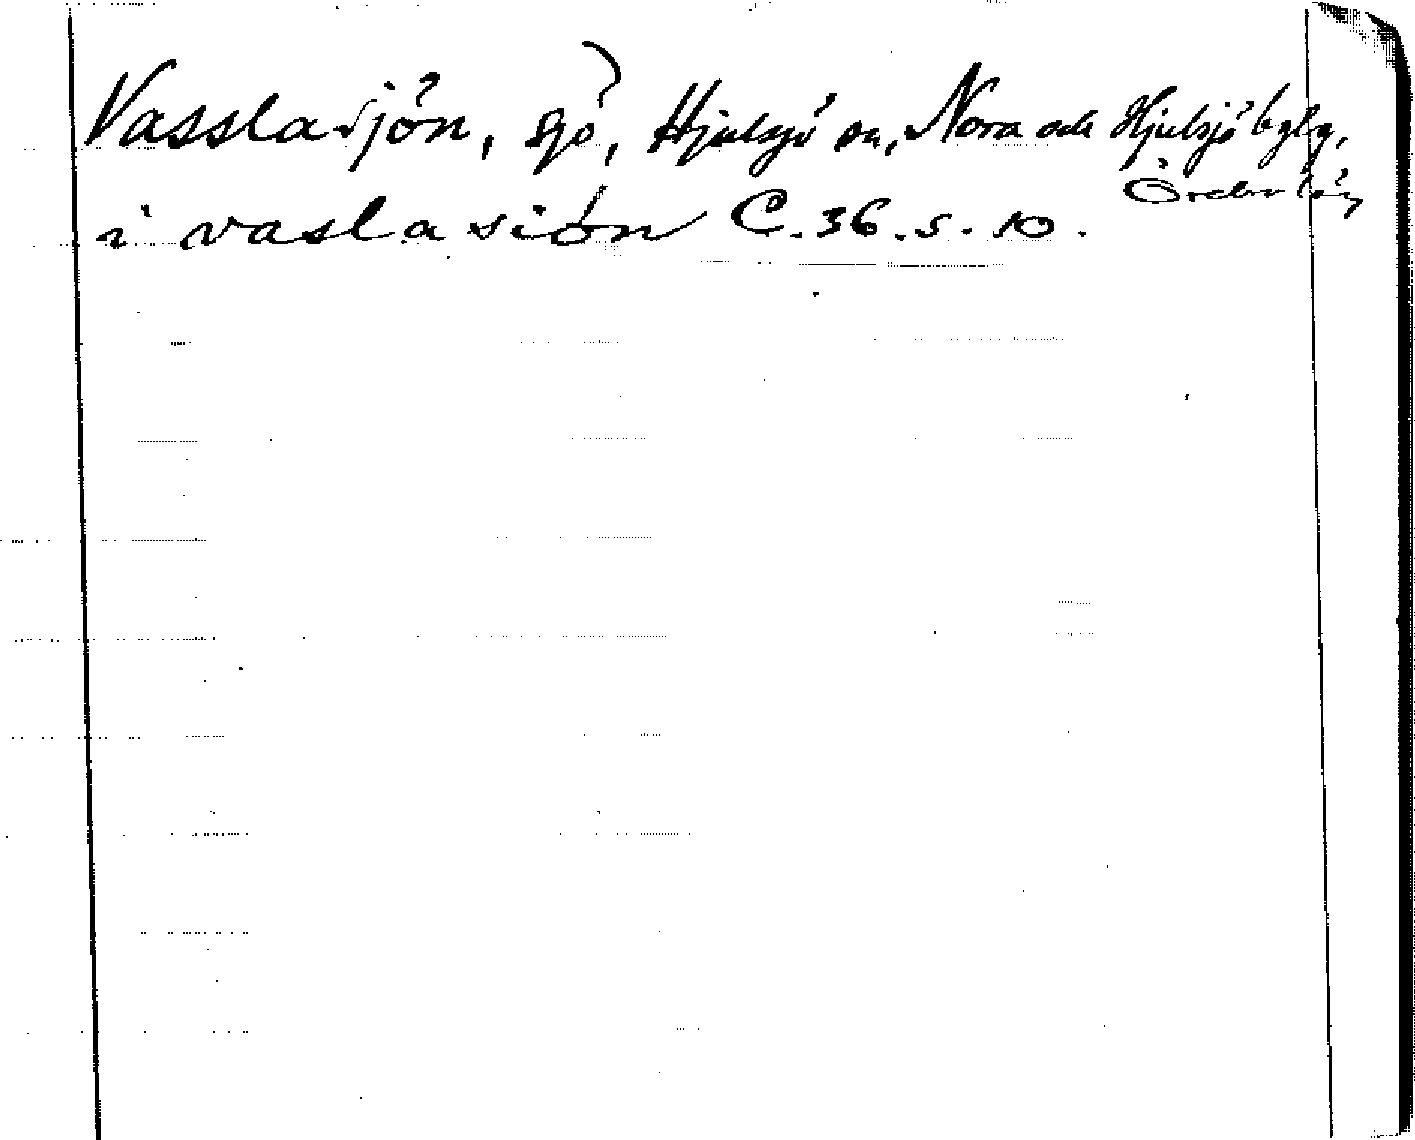 Vasslasjön, sjö, Hjulsjö sn, Nora och Hjulsjö bglg,
Örebro län
i vasla siön C.36.s.10.